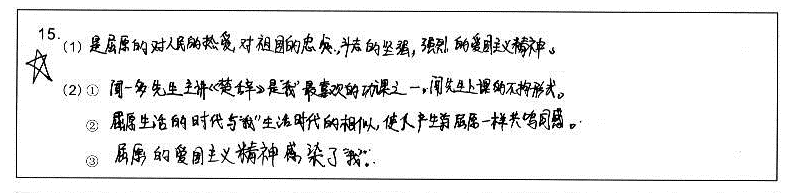 15.(1) 是屈原的对人民的热爱,对祖国的忠贞,斗志的坚强,强烈的爱国主义精神。
(2)① 闻一多先生主讲《楚辞》是"我"最喜欢的功课之一,闻先生上课的不拘形式。
② 屈原生活的时代与"我"生活时代的相似,使人产生着屈原一样共鸣同感。
③ 屈原的爱国主义精神感染了"我"。